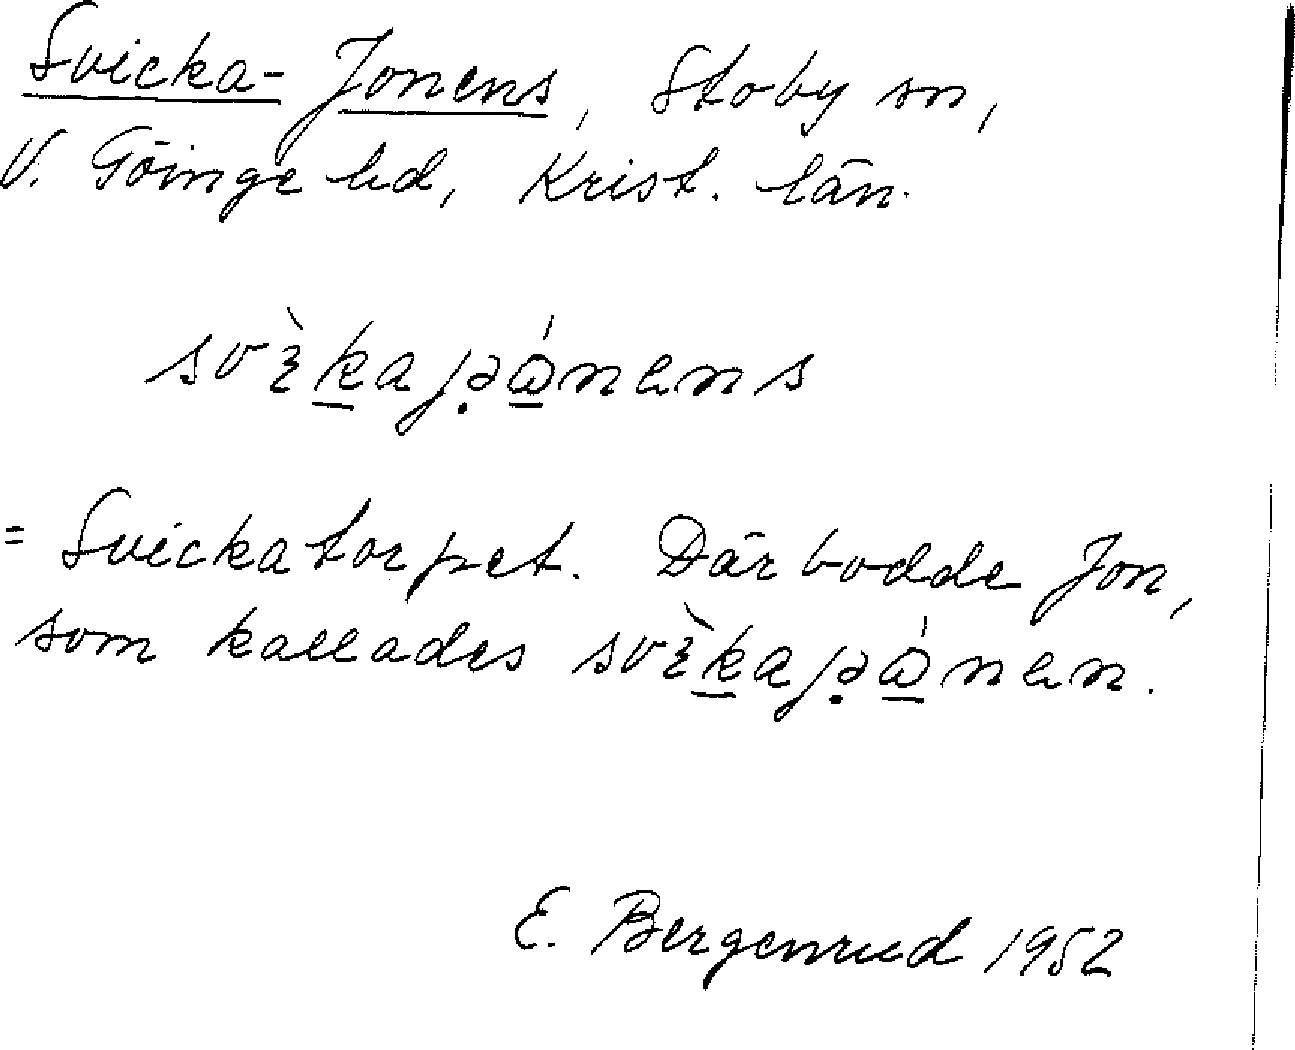 Svicka-Jonens, Stoby sn,
V. Göinge hd, Krist. län.
svɛ̀k̲ajə̣ɷ̲́nəns
= Svickatorpet. Där bodde Jon,
som kallades svɛ̀k̲ajə̣ɷ̲́nən.
E. Bergenrud 1952